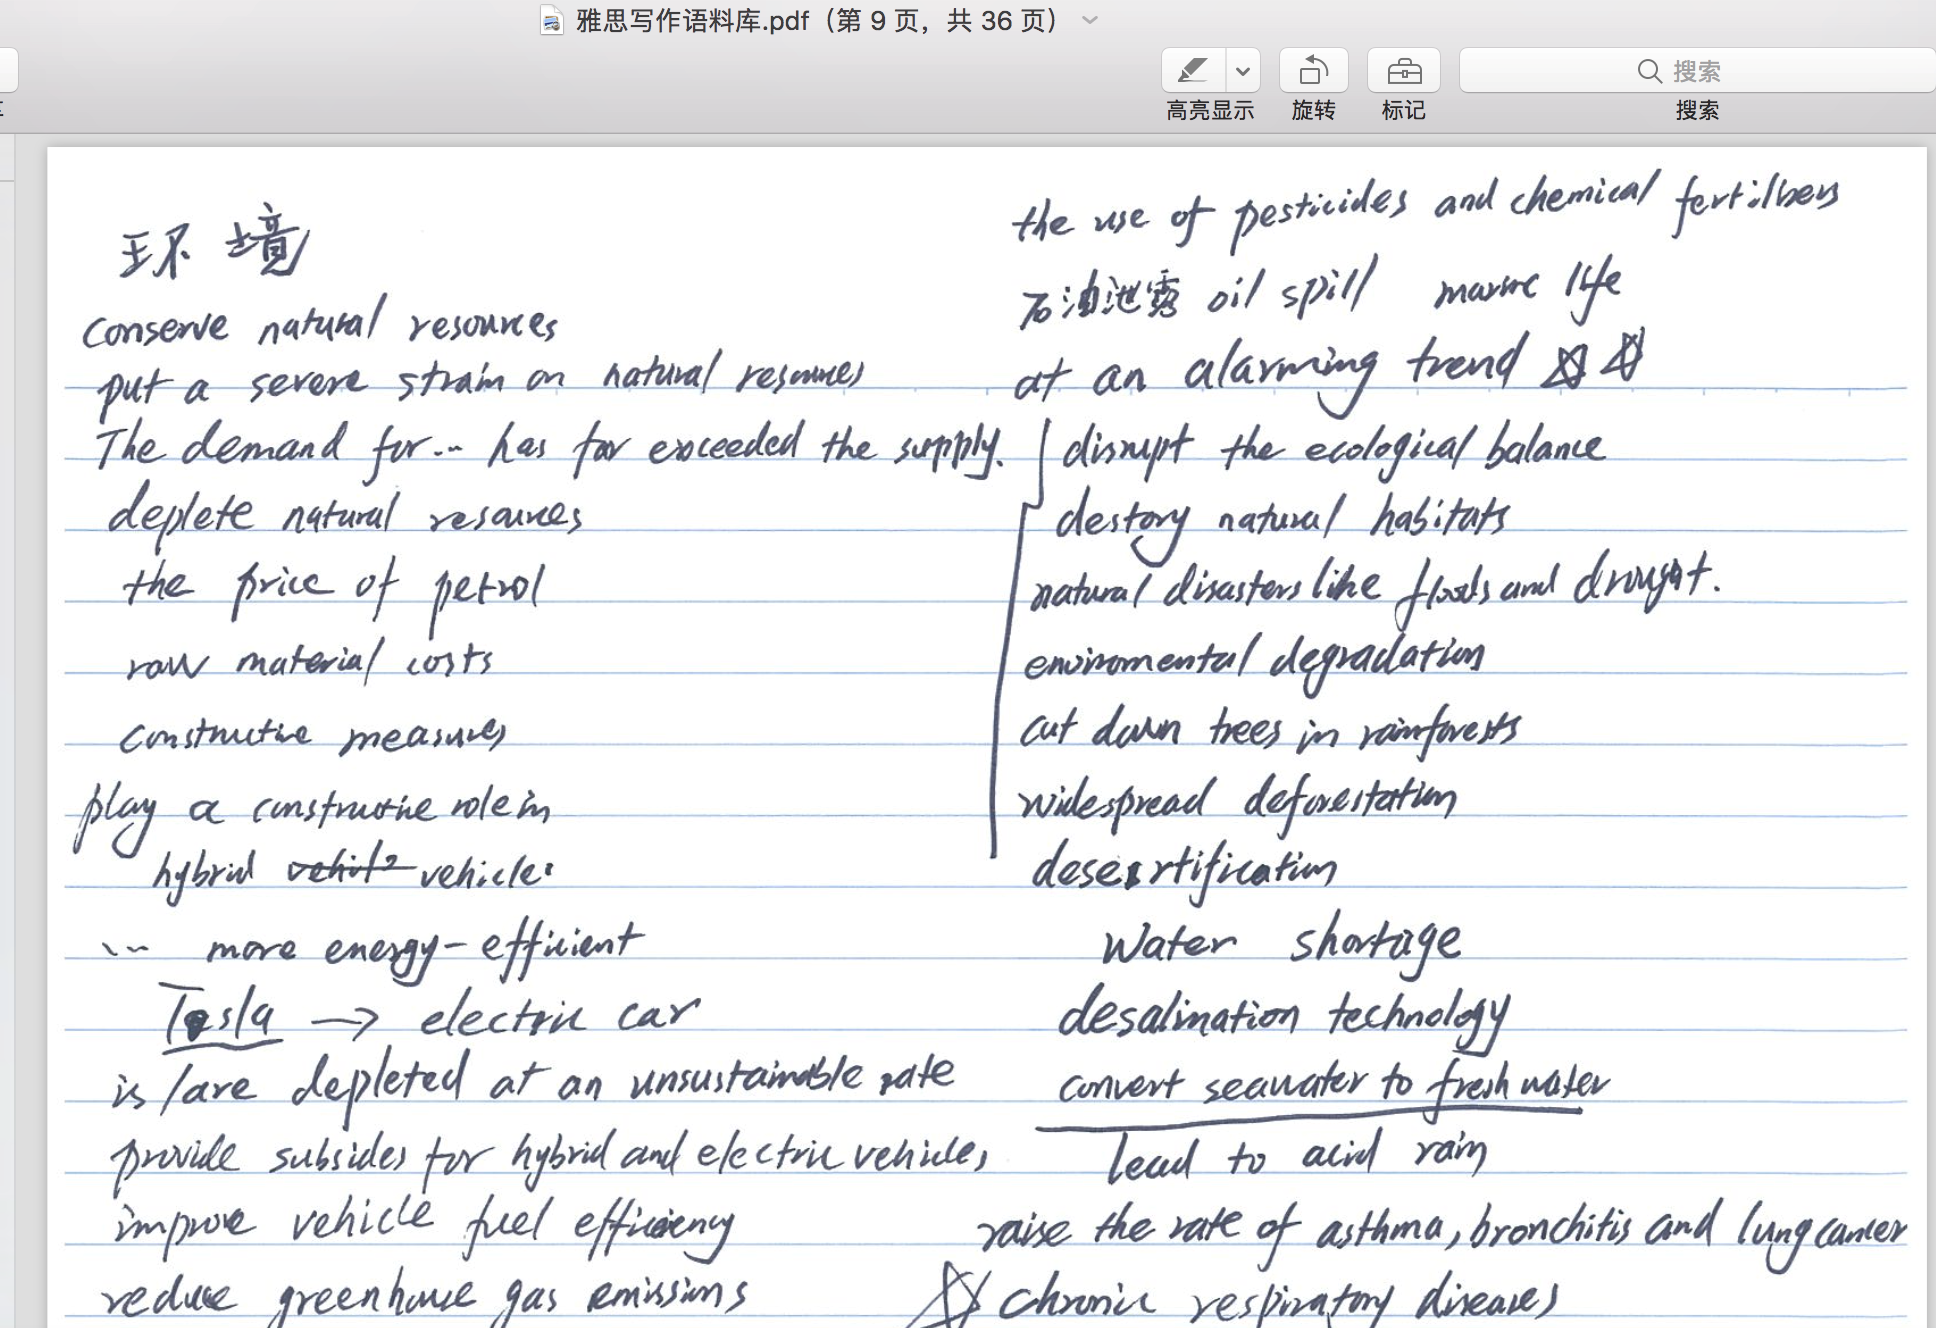 雅思写作语料库.pdf（第 9 页，共 36 页）
高亮显示
旋转
标记
搜索
搜索
环境
conserve natural resources
put a severe strain on natural resources
The demand for... has far exceeded the supply.
deplete natural resources
the price of petrol
raw material costs
constructive measures
play a constructive role in
hybrid vehicles
... more energy-efficient
Tesla → electric car
is/are depleted at an unsustainable rate
provide subsides for hybrid and electric vehicles
improve vehicle fuel efficiency
reduce greenhouse gas emissions
the use of pesticides and chemical fertilbers
石油泄露 oil spill marine life
at an alarming trend ☆☆
disrupt the ecological balance
destory natural habitats
natural disasters like floods and drought.
enviromental degradation
cut down trees in rainforests
widespread deforestation
desertification
Water shortage
desalination technology
convert seawater to fresh water
lead to acid rain
raise the rate of asthma, bronchitis and lung cancer
☆ chronic respiratory diseases